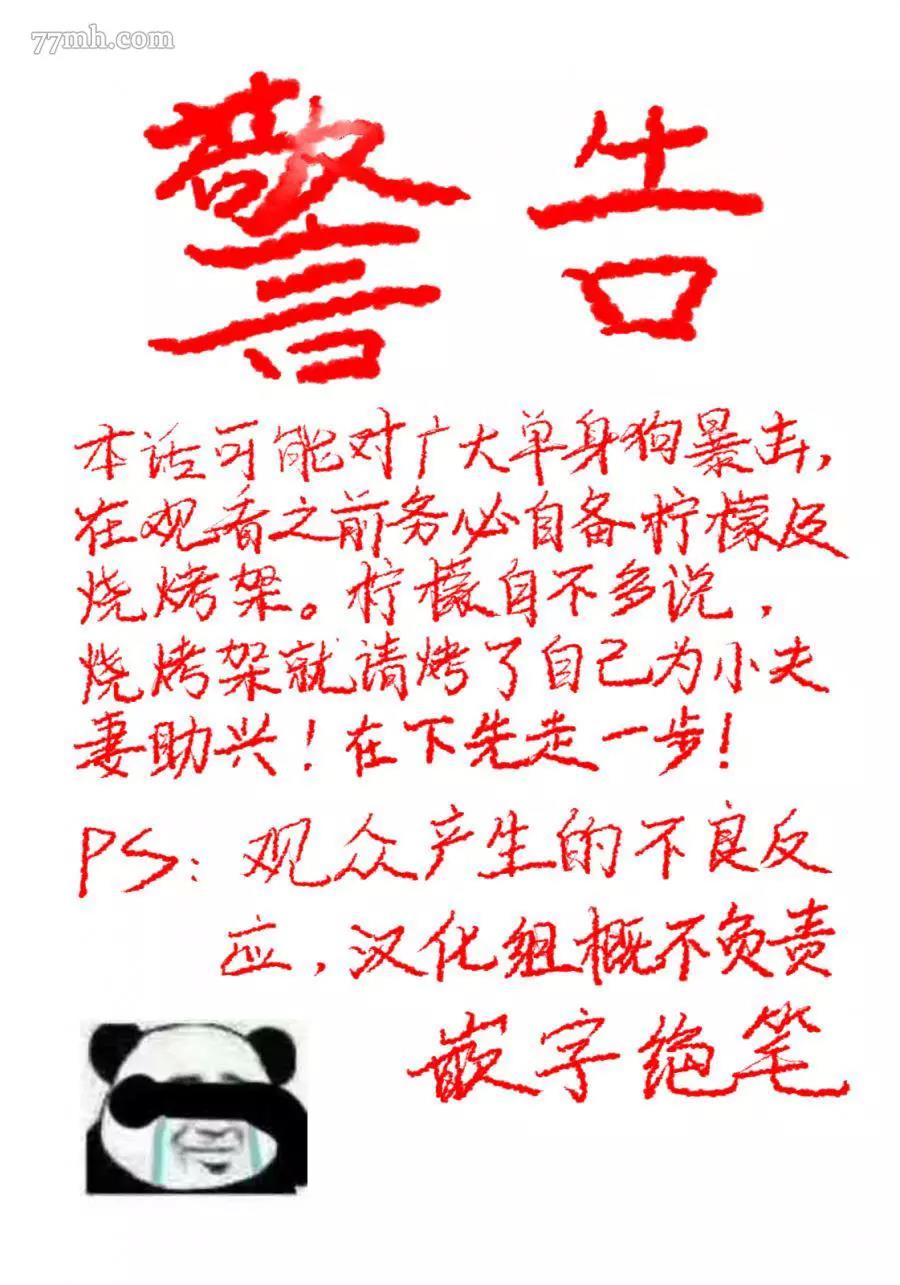 77mh.com
警告
本话可能对广大单身狗暴击，
在观看之前务必自备柠檬及
烧烤架。柠檬自不多说，
烧烤架就请烤了自己为小夫
妻助兴！在下先走一步！
PS：观众产生的不良反
应，汉化组概不负责
嵌字绝笔